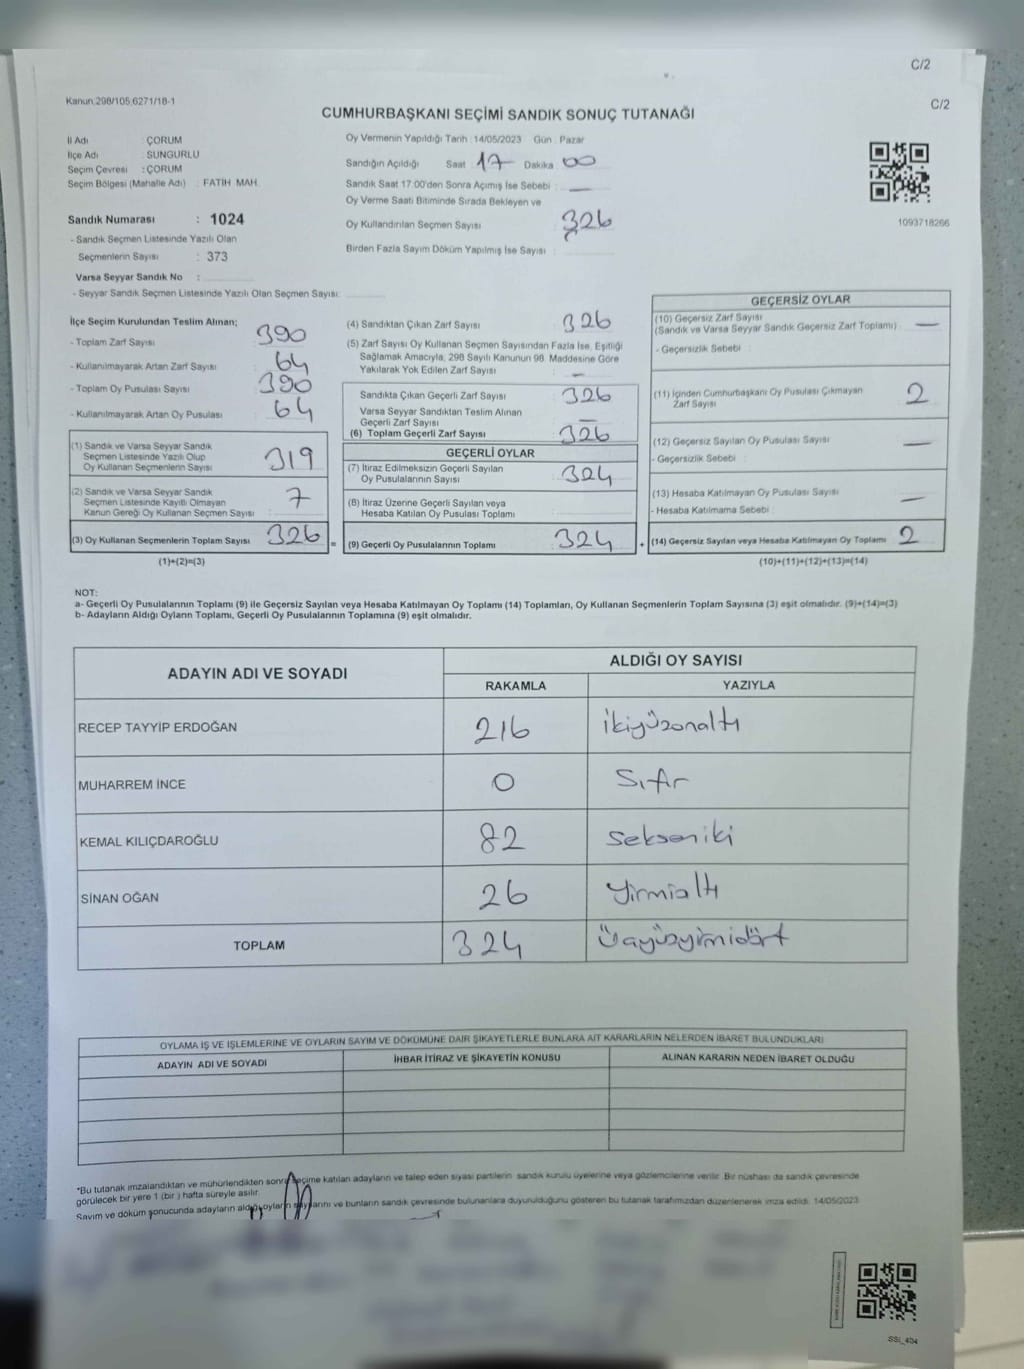 C/2
Kanun:298/105,6271/18-1
C/2
CUMHURBAŞKANI SEÇİMİ SANDIK SONUÇ TUTANAĞI
İl Adı : ÇORUM
İlçe Adı : SUNGURLU
Seçim Çevresi : ÇORUM
Seçim Bölgesi (Mahalle Adı) : FATİH MAH.
Oy Vermenin Yapıldığı Tarih : 14/05/2023 Gün : Pazar
Sandığın Açıldığı Saat : 17 Dakika : 00
Sandık Saat 17:00'den Sonra Açımış İse Sebebi : —
Oy Verme Saati Bitiminde Sırada Bekleyen ve
Oy Kullandırılan Seçmen Sayısı : 326
Birden Fazla Sayım Döküm Yapılmış İse Sayısı :
1093718266
Sandık Numarası : 1024
- Sandık Seçmen Listesinde Yazılı Olan
Seçmenlerin Sayısı : 373
Varsa Seyyar Sandık No :
- Seyyar Sandık Seçmen Listesinde Yazılı Olan Seçmen Sayısı:
İlçe Seçim Kurulundan Teslim Alınan;
- Toplam Zarf Sayısı : 390
- Kullanılmayarak Artan Zarf Sayısı : 64
- Toplam Oy Pusulası Sayısı : 390
- Kullanılmayarak Artan Oy Pusulası : 64
(1) Sandık ve Varsa Seyyar Sandık
Seçmen Listesinde Yazılı Olup
Oy Kullanan Seçmenlerin Sayısı : 319
(2) Sandık ve Varsa Seyyar Sandık
Seçmen Listesinde Kayıtlı Olmayan
Kanun Gereği Oy Kullanan Seçmen Sayısı : 7
(3) Oy Kullanan Seçmenlerin Toplam Sayısı : 326 =
(1)+(2)=(3)
(4) Sandıktan Çıkan Zarf Sayısı : 326
(5) Zarf Sayısı Oy Kullanan Seçmen Sayısından Fazla İse, Eşitliği
Sağlamak Amacıyla, 298 Sayılı Kanunun 98. Maddesine Göre
Yakılarak Yok Edilen Zarf Sayısı : —
Sandıkta Çıkan Geçerli Zarf Sayısı : 326
Varsa Seyyar Sandıktan Teslim Alınan
Geçerli Zarf Sayısı : —
(6) Toplam Geçerli Zarf Sayısı : 326
GEÇERLİ OYLAR
(7) İtiraz Edilmeksizin Geçerli Sayılan
Oy Pusulalarının Sayısı : 324
(8) İtiraz Üzerine Geçerli Sayılan veya
Hesaba Katılan Oy Pusulası Toplamı :
(9) Geçerli Oy Pusulalarının Toplamı : 324 +
GEÇERSİZ OYLAR
(10) Geçersiz Zarf Sayısı
(Sandık ve Varsa Seyyar Sandık Geçersiz Zarf Toplamı) : —
- Geçersizlik Sebebi :
(11) İçinden Cumhurbaşkanı Oy Pusulası Çıkmayan
Zarf Sayısı : 2
(12) Geçersiz Sayılan Oy Pusulası Sayısı : —
- Geçersizlik Sebebi :
(13) Hesaba Katılmayan Oy Pusulası Sayısı : —
- Hesaba Katılmama Sebebi :
(14) Geçersiz Sayılan veya Hesaba Katılmayan Oy Toplamı : 2
(10)+(11)+(12)+(13)=(14)
NOT:
a- Geçerli Oy Pusulalarının Toplamı (9) ile Geçersiz Sayılan veya Hesaba Katılmayan Oy Toplamı (14) Toplamları, Oy Kullanan Seçmenlerin Toplam Sayısına (3) eşit olmalıdır. (9)+(14)=(3)
b- Adayların Aldığı Oyların Toplamı, Geçerli Oy Pusulalarının Toplamına (9) eşit olmalıdır.
ADAYIN ADI VE SOYADI
ALDIĞI OY SAYISI
RAKAMLA YAZIYLA
RECEP TAYYİP ERDOĞAN 216 ikiyüzonaltı
MUHARREM İNCE 0 Sıfır
KEMAL KILIÇDAROĞLU 82 Sekseniki
SİNAN OĞAN 26 Yirmialtı
TOPLAM 324 Üçyüzyirmidört
OYLAMA İŞ VE İŞLEMLERİNE VE OYLARIN SAYIM VE DÖKÜMÜNE DAİR ŞİKAYETLERLE BUNLARA AİT KARARLARIN NELERDEN İBARET BULUNDUKLARI
ADAYIN ADI VE SOYADI İHBAR İTİRAZ VE ŞİKAYETİN KONUSU ALINAN KARARIN NEDEN İBARET OLDUĞU
*Bu tutanak imzalandıktan ve mühürlendikten sonra seçime katılan adayların ve talep eden siyasi partilerin sandık kurulu üyelerine veya gözlemcilerine verilir. Bir nüshası da sandık çevresinde
görülecek bir yere 1 (bir) hafta süreyle asılır.
Sayım ve döküm sonucunda adayların aldığı oyların sayılarını ve bunların sandık çevresinde bulunanlara duyurulduğunu gösteren bu tutanak tarafımızdan düzenlenerek imza edildi. 14/05/2023
SSI_404